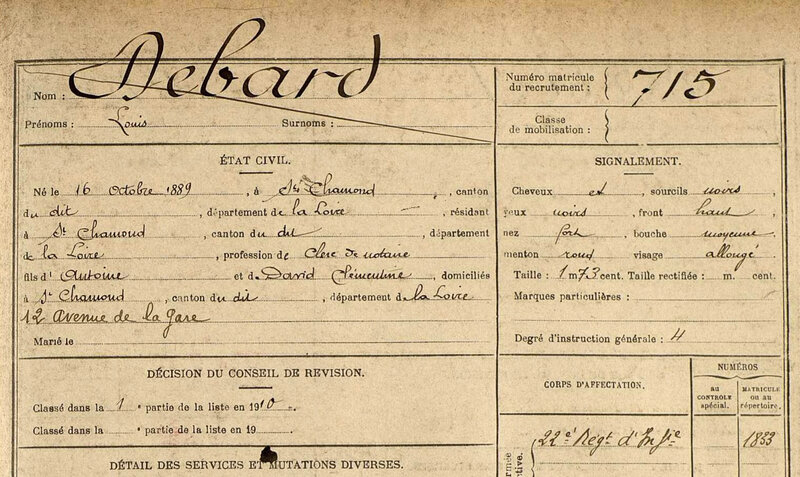 Nom : Debard
Prénoms : Louis Surnoms :
Numéro matricule du recrutement : 715
Classe de mobilisation :
ÉTAT CIVIL.
Né le 16 Octobre 1889, à St Chamond, canton
du dit, département de la Loire, résidant
à St Chamond, canton du dit, département
de la Loire, profession de Clerc de notaire
fils d'Antoine et de David Clémentine, domiciliés
à St Chamond, canton du dit, département de la Loire
12 Avenue de la Gare
Marié le
SIGNALEMENT.
Cheveux et, sourcils noirs,
yeux noirs, front haut
nez fort, bouche moyenne
menton rond visage allongé
Taille : 1 m 73 cent. Taille rectifiée : m. cent.
Marques particulières :
Degré d'instruction générale : 4
DÉCISION DU CONSEIL DE REVISION.
Classé dans la 1e partie de la liste en 1910.
Classé dans la e partie de la liste en 19
DÉTAIL DES SERVICES ET MUTATIONS DIVERSES.
CORPS D'AFFECTATION.
NUMÉROS
AU CONTROLE spécial.
MATRICULE ou au répertoire.
22e Régt d'Infie 1833